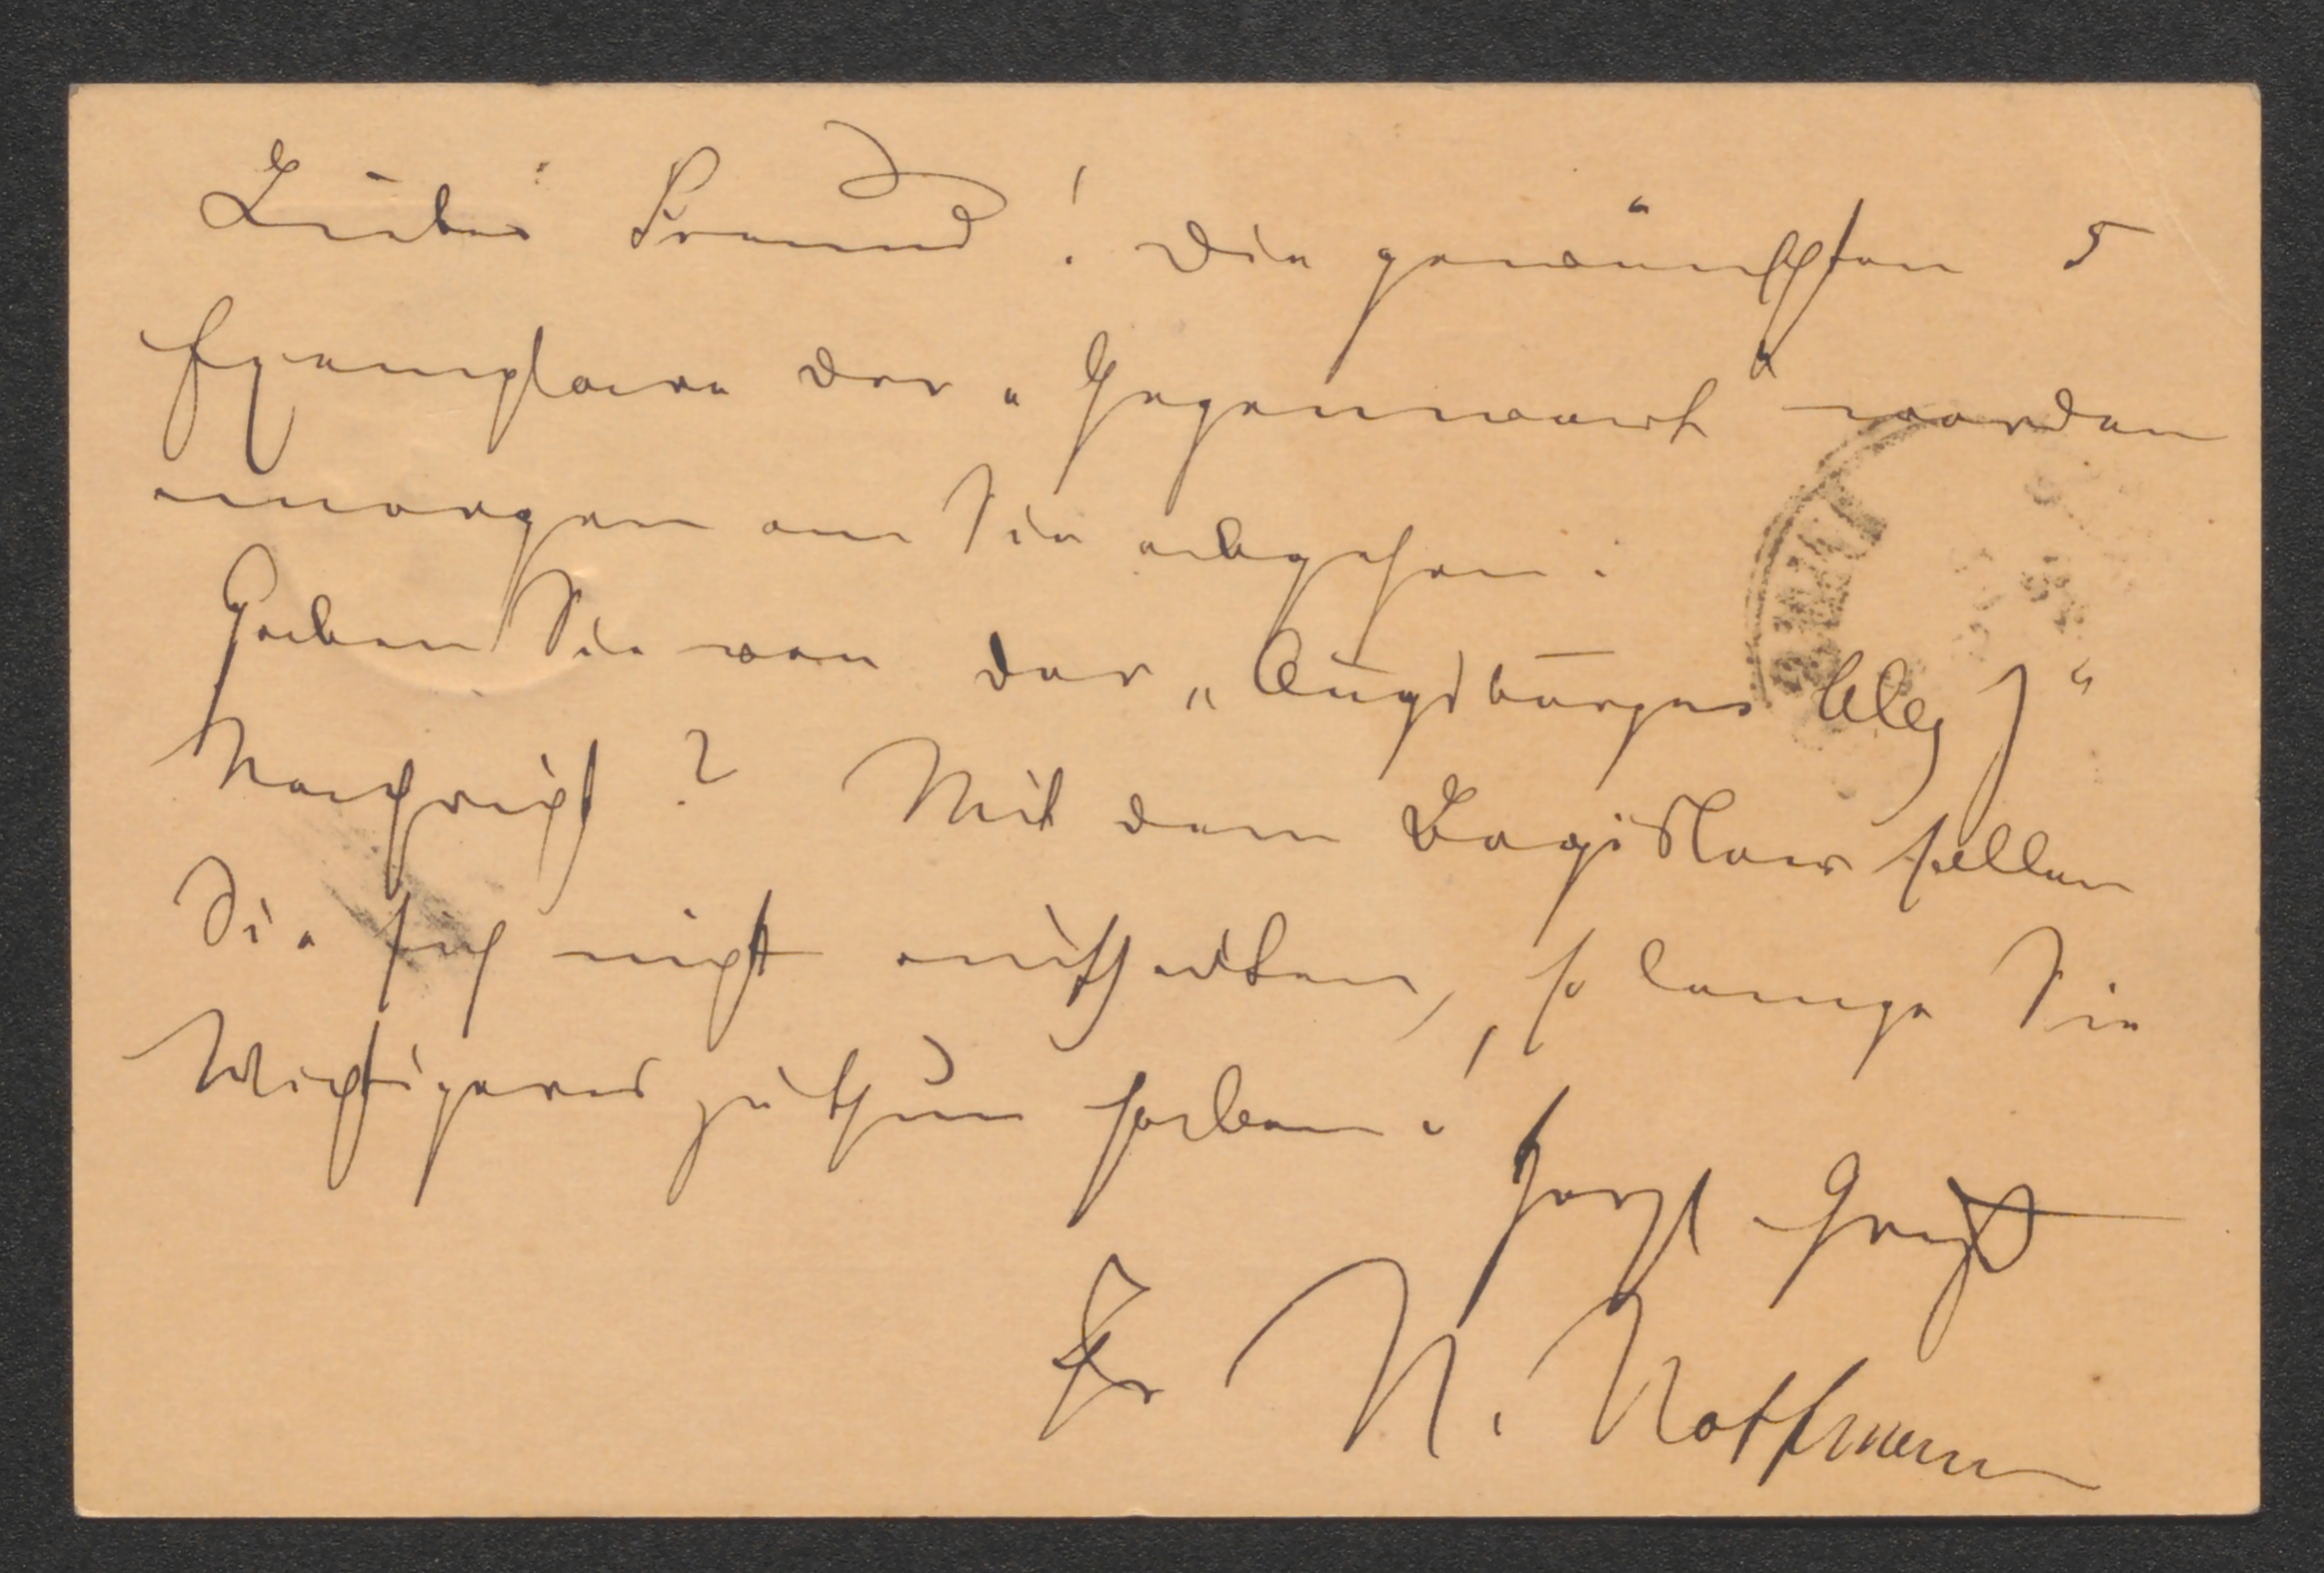 Lieber Freund! Die gewünschten 5
Exemplare der „Gegenwart“ werden
morgen an Sie abgehen.
Haben Sie von der „Augsburger Allg Z“
Nachricht? Mit dem sollen
Sie sich nicht , so lange Sie
Wichtigeres zu thun haben.
Herzl Gruß
Ihr N.